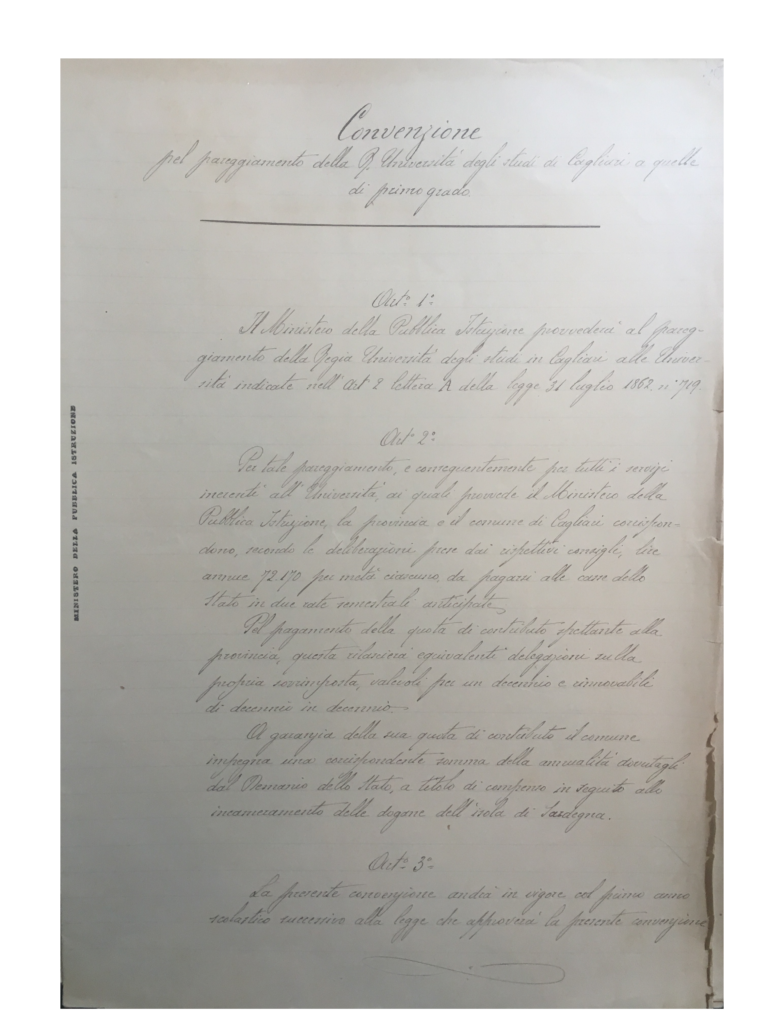 Convenzione
pel pareggiamento della R. Università degli studi di Cagliari a quelle
di primo grado.
Art.º 1º
Il Ministero della Pubblica Istruzione provvederà al pareg-
giamento della Regia Università degli studi in Cagliari alle Univer-
sità indicate nell'Art. 2 lettera A della legge 31 luglio 1862 n. 719
Art. 2º
Per tale pareggiamento, e conseguentemente per tutti i servizi
inerenti all'Università, ai quali provvede il Ministero della
Pubblica Istruzione, la provincia e il comune di Cagliari corrispon-
dono, secondo le deliberazioni prese dai rispettivi consigli, lire
annue 72.170 per metà ciascuno, da pagarsi alle casse dello
Stato in due rate semestrali anticipate
Pel pagamento della quota di contributo spettante alla
provincia, questa rilascierà equivalenti delegazioni sulla
propria sovrimposta, valevoli per un decennio e rinnovabili
di decennio in decennio.
A garanzia della sua quota di contributo il comune
impegna una corrispondente somma della annualità dovutagli
dal Demanio dello Stato, a titolo di compenso in seguito allo
incameramento delle dogane dell'isola di Sardegna.
Art.º 3º
La presente convenzione andrà in vigore col primo anno
scolastico successivo alla legge che approverà la presente convenzione
MINISTERO DELLA PUBBLICA ISTRUZIONE